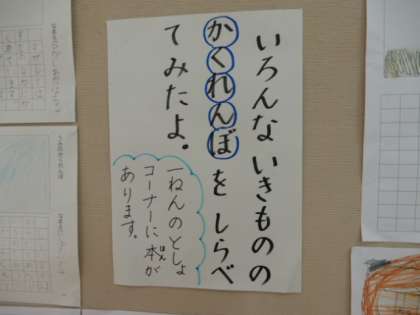 いろんないきものの
かくれんぼをしらべ
てみたよ。
一ねんのとしょ
コーナーに本が
ほん
あります。